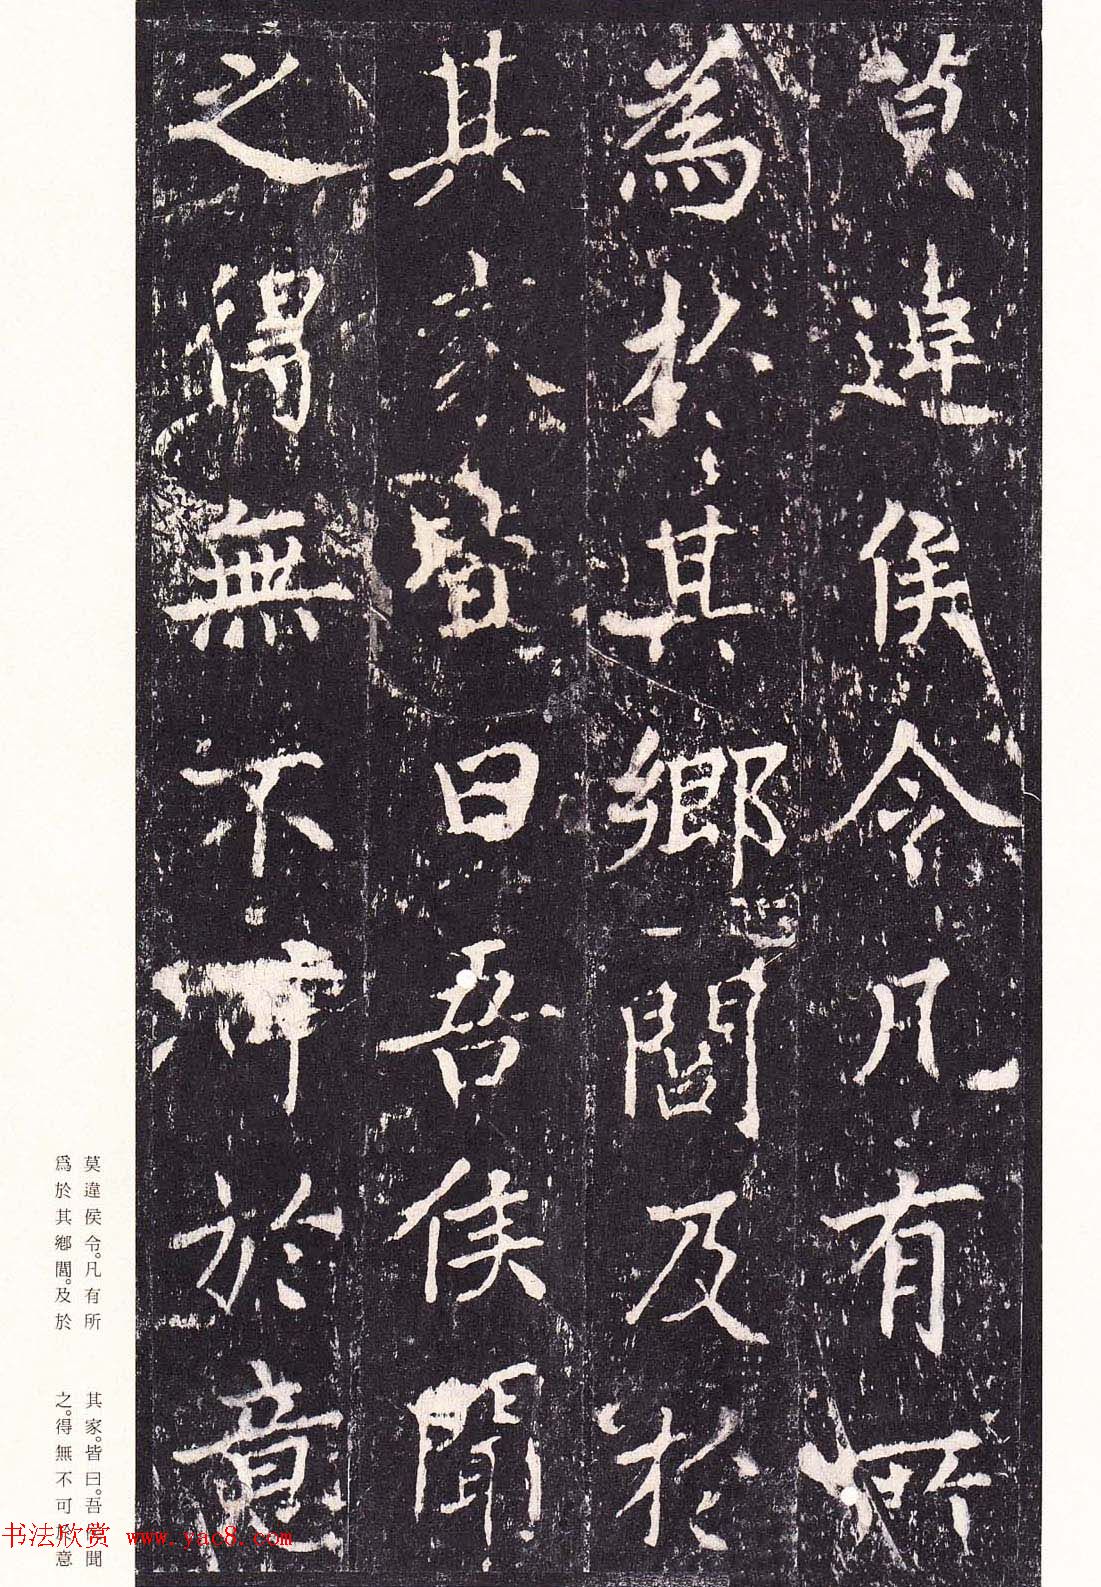 莫違侯令凡有所
為於其鄉閭及於
其家皆曰吾侯聞
之得無不可於意
莫違侯令。凡有所
爲於其鄉閭。及於
其家。皆曰。吾侯聞
之。得無不可於意
书法欣赏 www.yac8.com